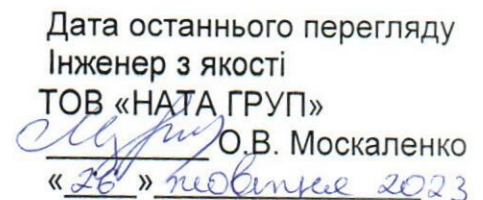 Дата останнього перегляду
Інженер з якості
ТОВ «НАТА ГРУП»
О.В. Москаленко
«26» жовтня 2023